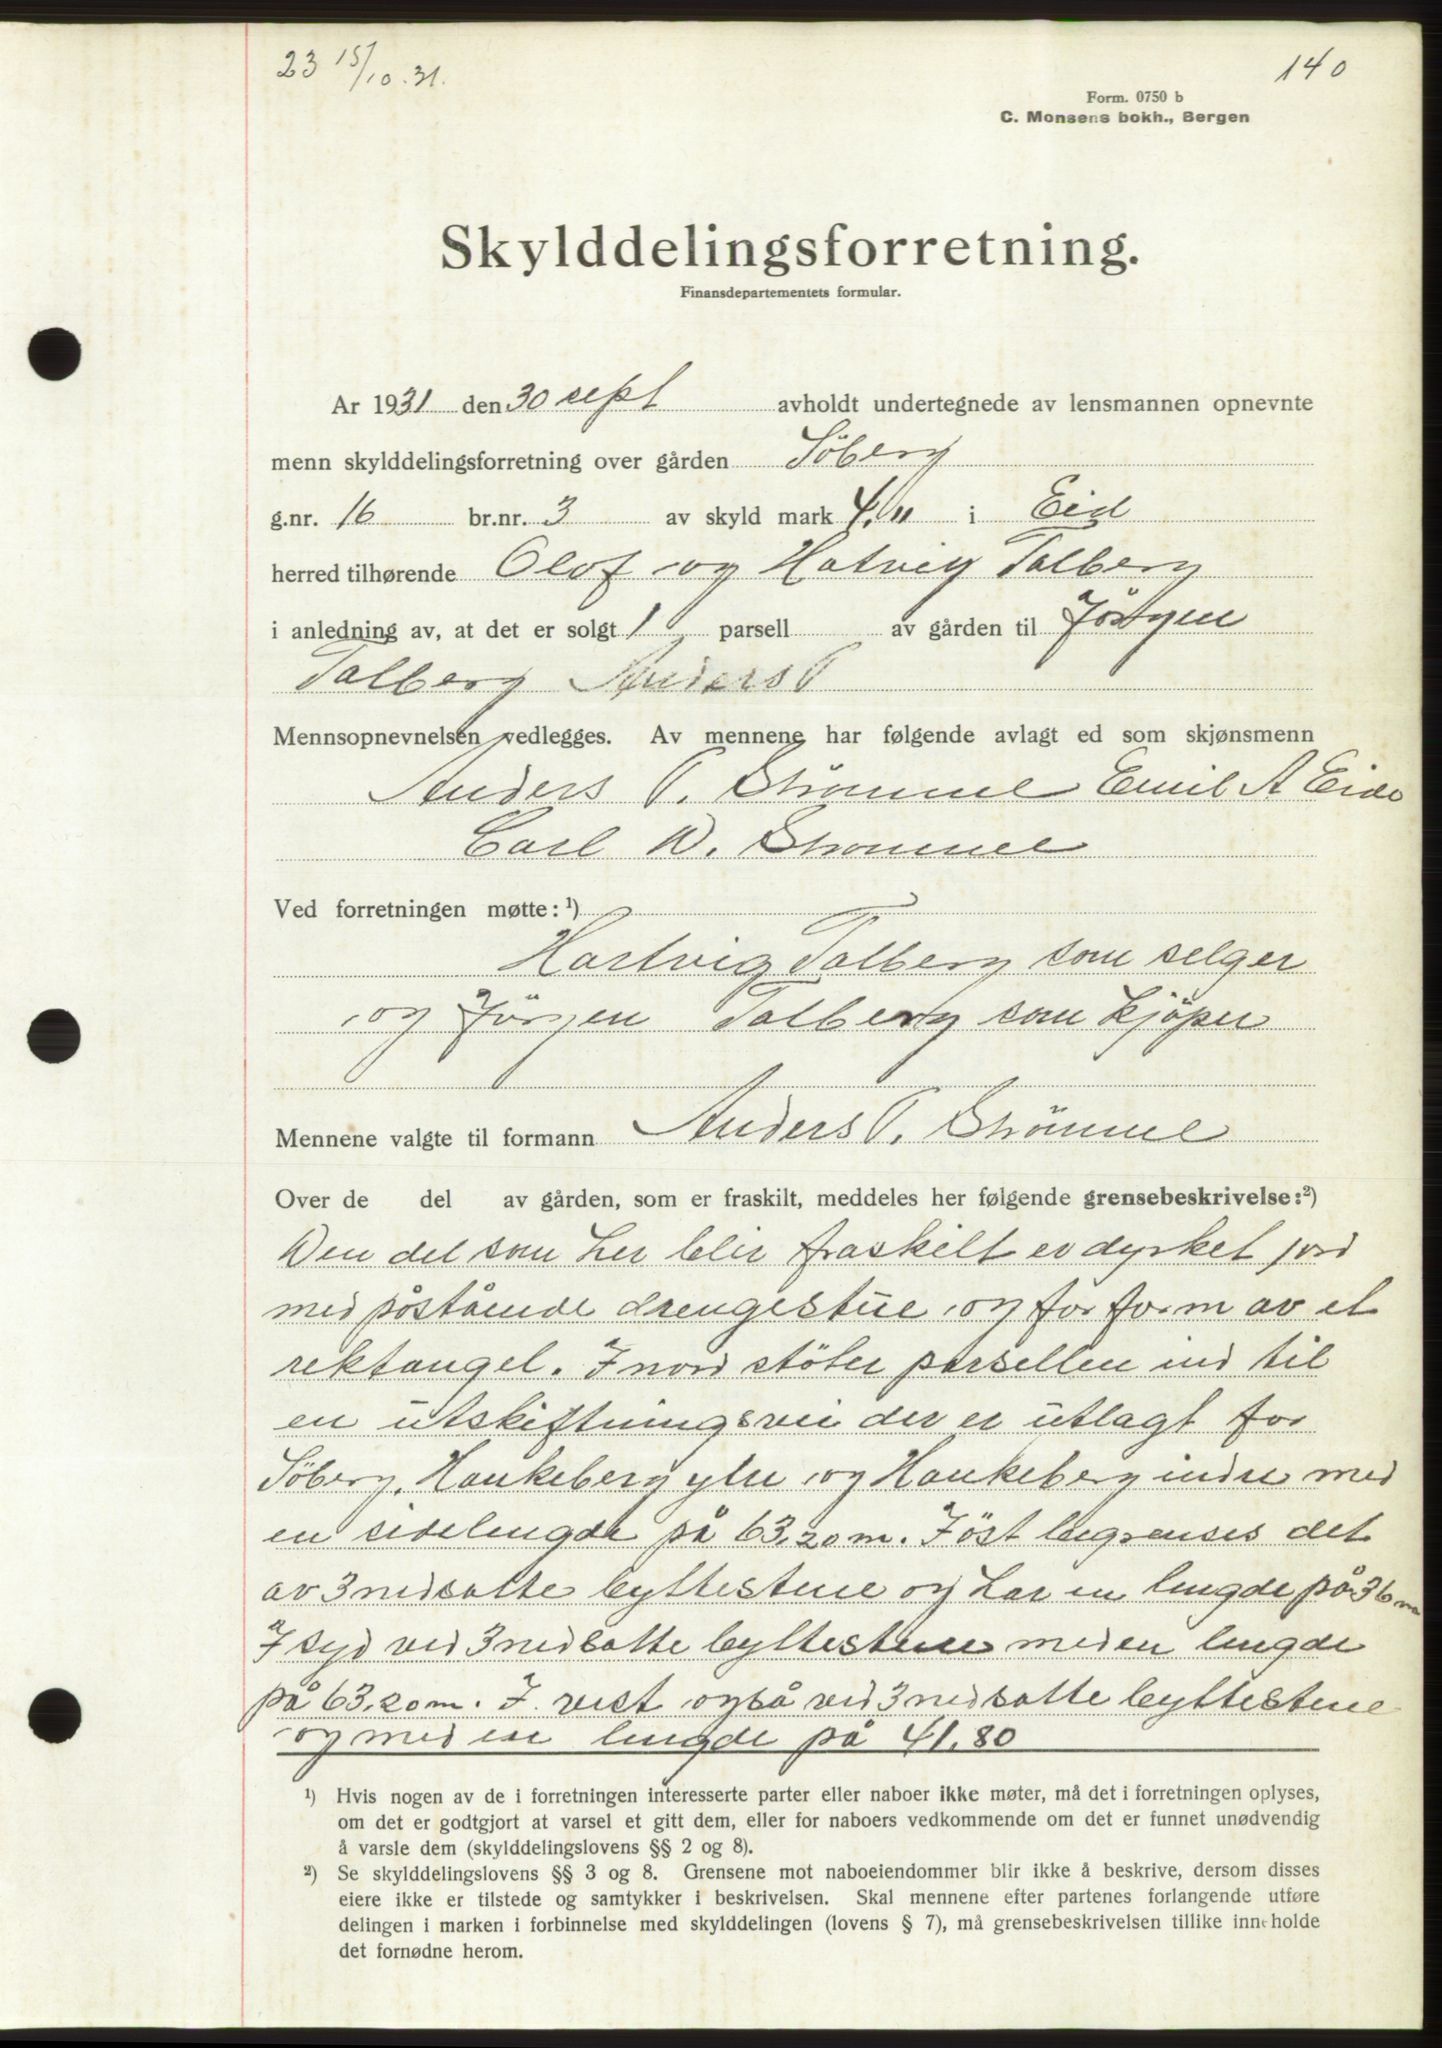 23 15/10.31.
140
Form. 0750 b
C. Monsens bokh., Bergen
Skylddelingsforretning.
Finansdepartementets formular.
Ar 1931 den 30 sept avholdt undertegnede av lensmannen opnevnte
menn skylddelingsforretning over gården Söberg
g.nr. 16 br.nr. 3 av skyld mark 4," i Eid
herred tilhørende Olof og Hatvig Talberg
i anledning av, at det er solgt 1 parsell av gården til Jörgen
Talberg Anders P
Mennsopnevnelsen vedlegges. Av mennene har følgende avlagt ed som skjønsmenn
Anders P. Strömmel Emil A Eide
Carl W. Strommel
Ved forretningen møtte: ¹)
Hartvig Talberg som selger
og Jörgen Talberg som kjöper
Mennene valgte til formann Anders P. Strömmel
Over de del av gården, som er fraskilt, meddeles her følgende grensebeskrivelse: ²)
Den del som her blir fraskilt er dyrket jord
med påstående drengestue og for form av et
rektangel. I nord stöter parsellen ind til
en utskiftningsvei der er utlagt for
Söberg, Haukeberg ytre og Haukeberg indre med
en sidelengde på 63,20 m. I öst begrenses det
av 3 nedsatte byttestene og har en lengde på 36 m
I syd ved 3 nedsatte byttestene med en lengde
på 63,20 m. I. vest også ved 3 nedsatte byttestene
og med en lengde på 41,80
¹) Hvis nogen av de i forretningen interesserte parter eller naboer ikke møter, må det i forretningen oplyses,
om det er godtgjort at varsel et gitt dem, eller for naboers vedkommende om det er funnet unødvendig
å varsle dem (skylddelingslovens §§ 2 og 8).
²) Se skylddelingslovens §§ 3 og 8. Grensene mot naboeiendommer blir ikke å beskrive, dersom disses
eiere ikke er tilstede og samtykker i beskrivelsen. Skal mennene efter partenes forlangende utføre
delingen i marken i forbinnelse med skylddelingen (lovens § 7), må grensebeskrivelsen tillike inneholde
det fornødne herom.